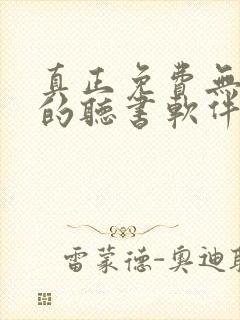 真正免費無
的聽書軟件
雷蒙德-奧迪